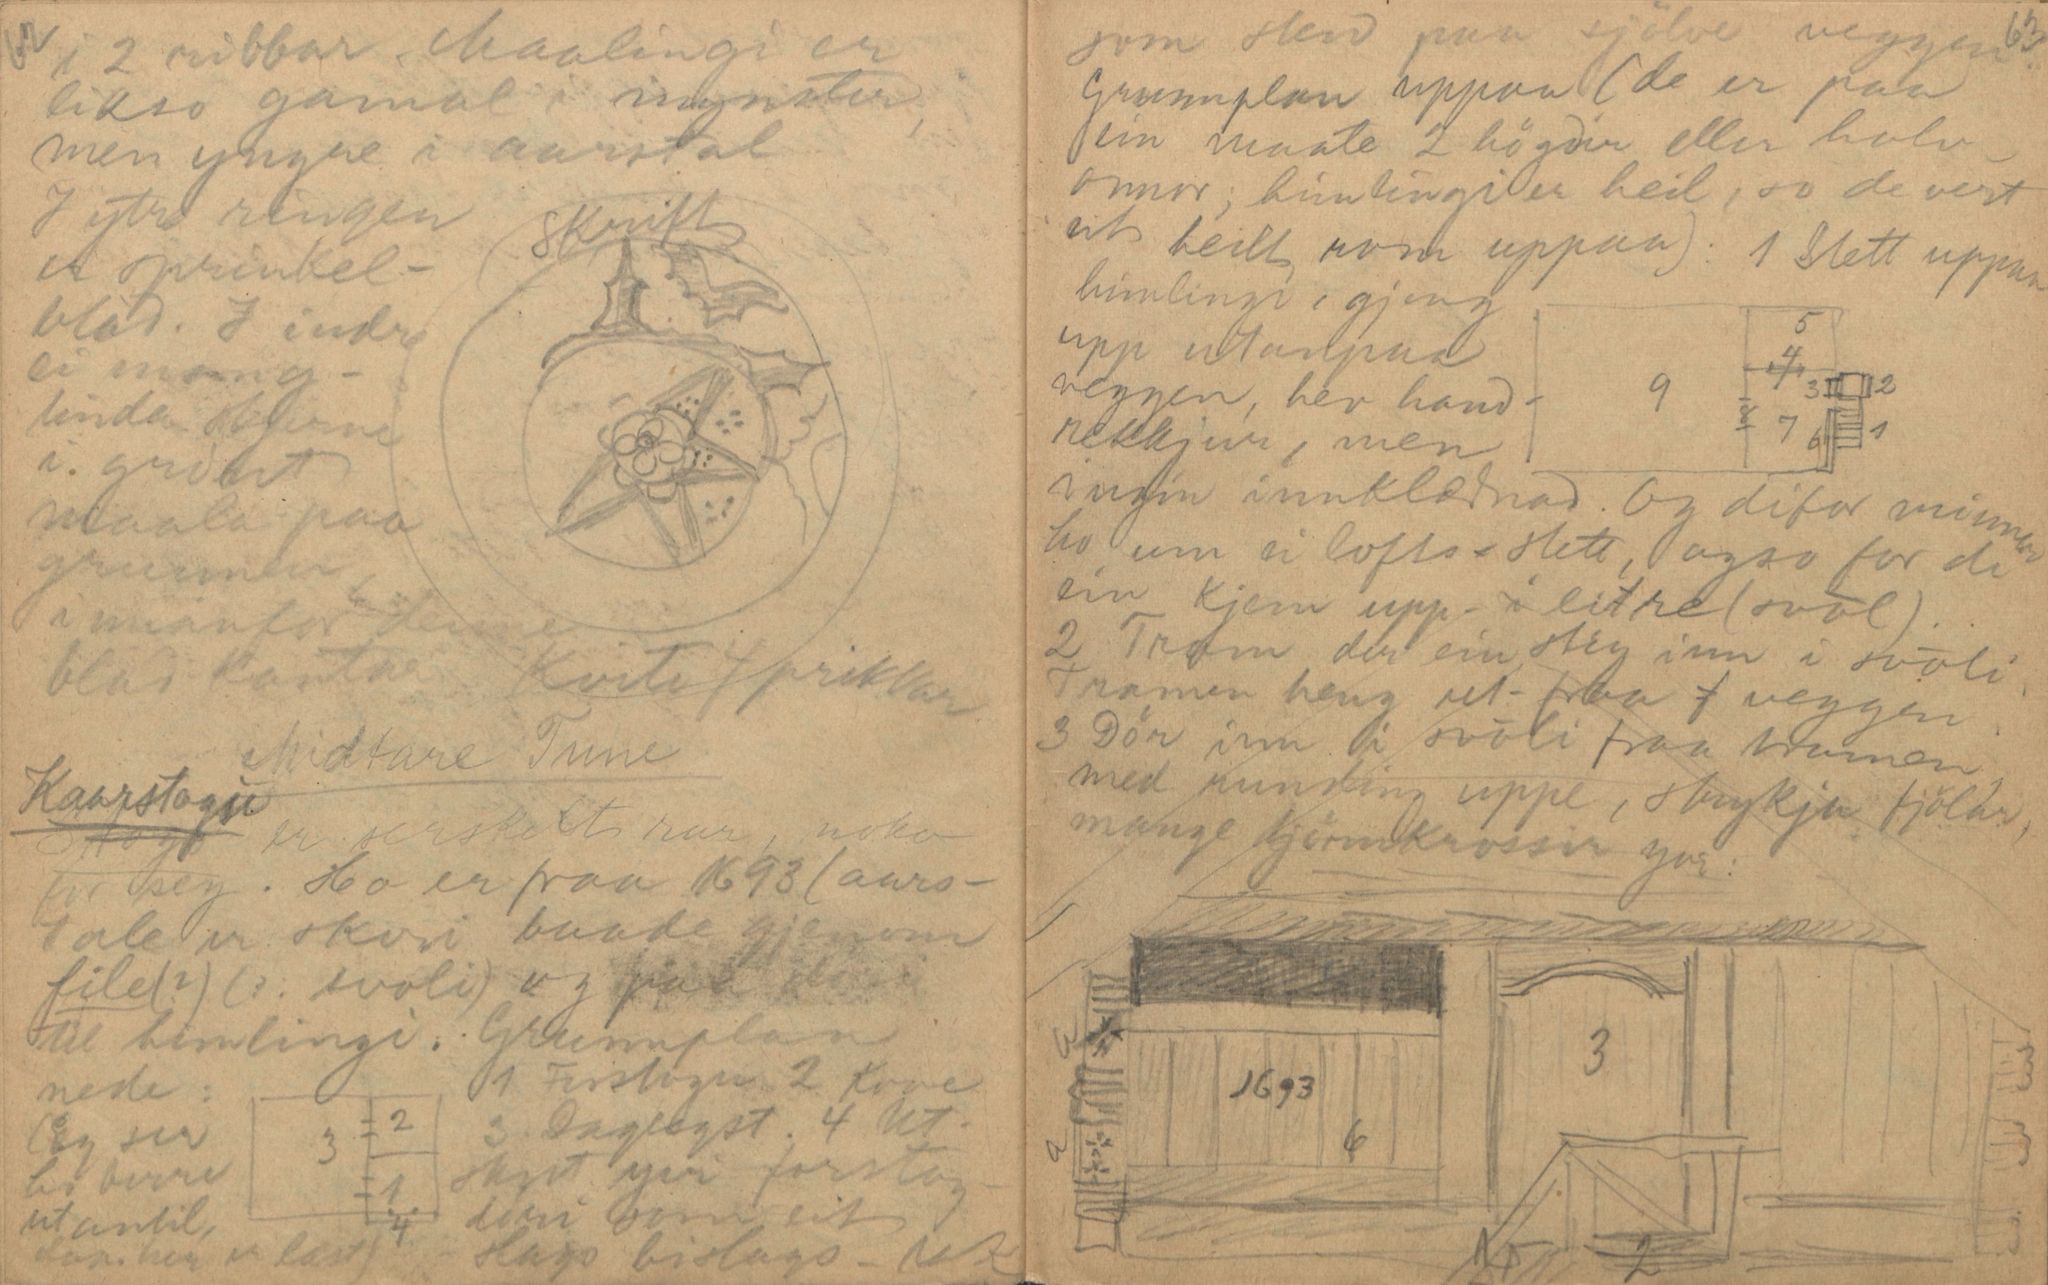 62
i 2 ribbar. Maalingi er
likso gamal i mynster,
men yngre i aarstal
I ytre ringen
er sprinkel-
blad. I indre
ei mang-
linda stjerne
i grönt
maala paa
grunnen,
innanfor denne
blad kantar Kvite prikkar
Skrift
Midtare Tune
Kaarstogu
er serskelt rar, noko
for seg. Ho er fraa 1693 (aars-
tale er skori baade gjenom
file(?) (ɔ: svoli) og paa döri
til himlingi. Grunnplan
nede:
1 Forstogu 2 Kove
3 Daglegst. 4 Ut-
skot yvi forstog-
döri som eit
slags bislags-
(Eg ser
ho berre
utantil,
er læst)
3 2 1 4
63
som stend paa sjölve veggen.
Grunnplan uppaa (de er paa
ein maate 2 högder eller halv-
onnor; himlingi er heil, so de vert
eit heilt rom uppaa): 1 Stett uppaa
himlingi, gjeng
upp utanpaa
veggen, hev hand-
rekkjur, men
ingin innklædnad. Og difor minner
ho um ei lofts-stett, ogso for di
ein kjem upp i eit re (svol).
2 Tram der ein steg inn i svoli.
Tramen heng ut fraa veggen
3 Dör inn i svoli fraa tramen
med runding uppe, strykju fjölar,
mange hjörnkrossir yvi:
5
4
9 3 2
8 7 6 1
1693
3
6
1 2